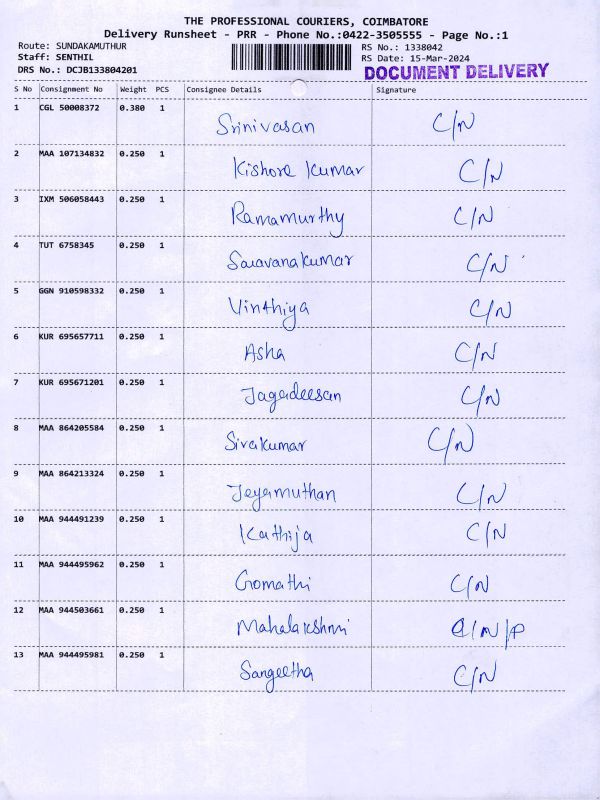 THE PROFESSIONAL COURIERS, COIMBATORE
Delivery Runsheet - PRR - Phone No.:0422-3505555 - Page No.:1
Route: SUNDAKAMUTHUR RS No.: 1338042
Staff: SENTHIL RS Date: 15-Mar-2024
DRS No.: DCJB133804201 DOCUMENT DELIVERY
S No Consignment No Weight PCS Consignee Details Signature
1 CGL 50008372 0.380 1 Srinivasan C/N
2 MAA 107134832 0.250 1 Kishore Kumar C/N
3 IXM 506058443 0.250 1 Ramamurthy C/N
4 TUT 6758345 0.250 1 Saravanakumar C/N
5 GGN 910598332 0.250 1 Vinthiya C/N
6 KUR 695657711 0.250 1 Asha C/N
7 KUR 695671201 0.250 1 Jagadeesan C/N
8 MAA 864205584 0.250 1 Sivakumar C/N
9 MAA 864213324 0.250 1 Jeyamuthan C/N
10 MAA 944491239 0.250 1 Kathija C/N
11 MAA 944495962 0.250 1 Gomathi C/N
12 MAA 944503661 0.250 1 Mahalakshmi C/N/P
13 MAA 944495981 0.250 1 Sangeetha C/N